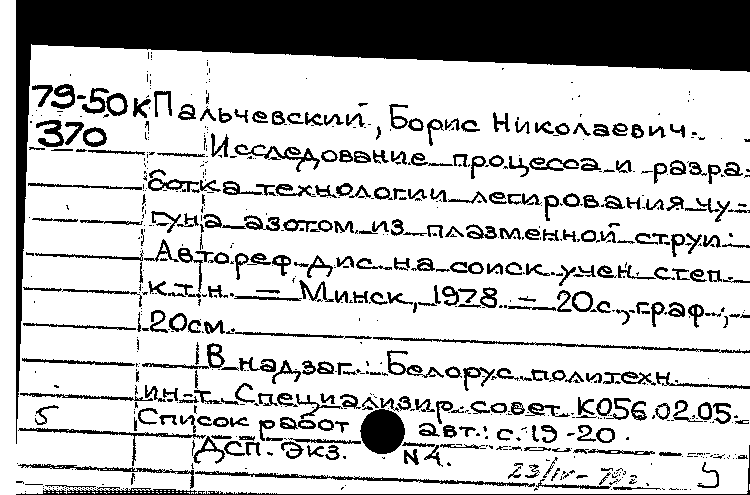 79-50к Пальчевский, Борис Николаевич.
370 Исследование процесса и разра-
ботка технологии легирования чу-
гуна азотом из плазменной струи:
Автореф. дис. на соиск. учен. степ.
к.т.н. — Минск, 1978. — 20с., граф.;
20см.
В надзаг.: Белорус. политехн.
ин-т. Специализир. совет К056.02.05.
5 Список работ авт.: с. 19-20.
ДСП. Экз. N4.
23/IV-79г.